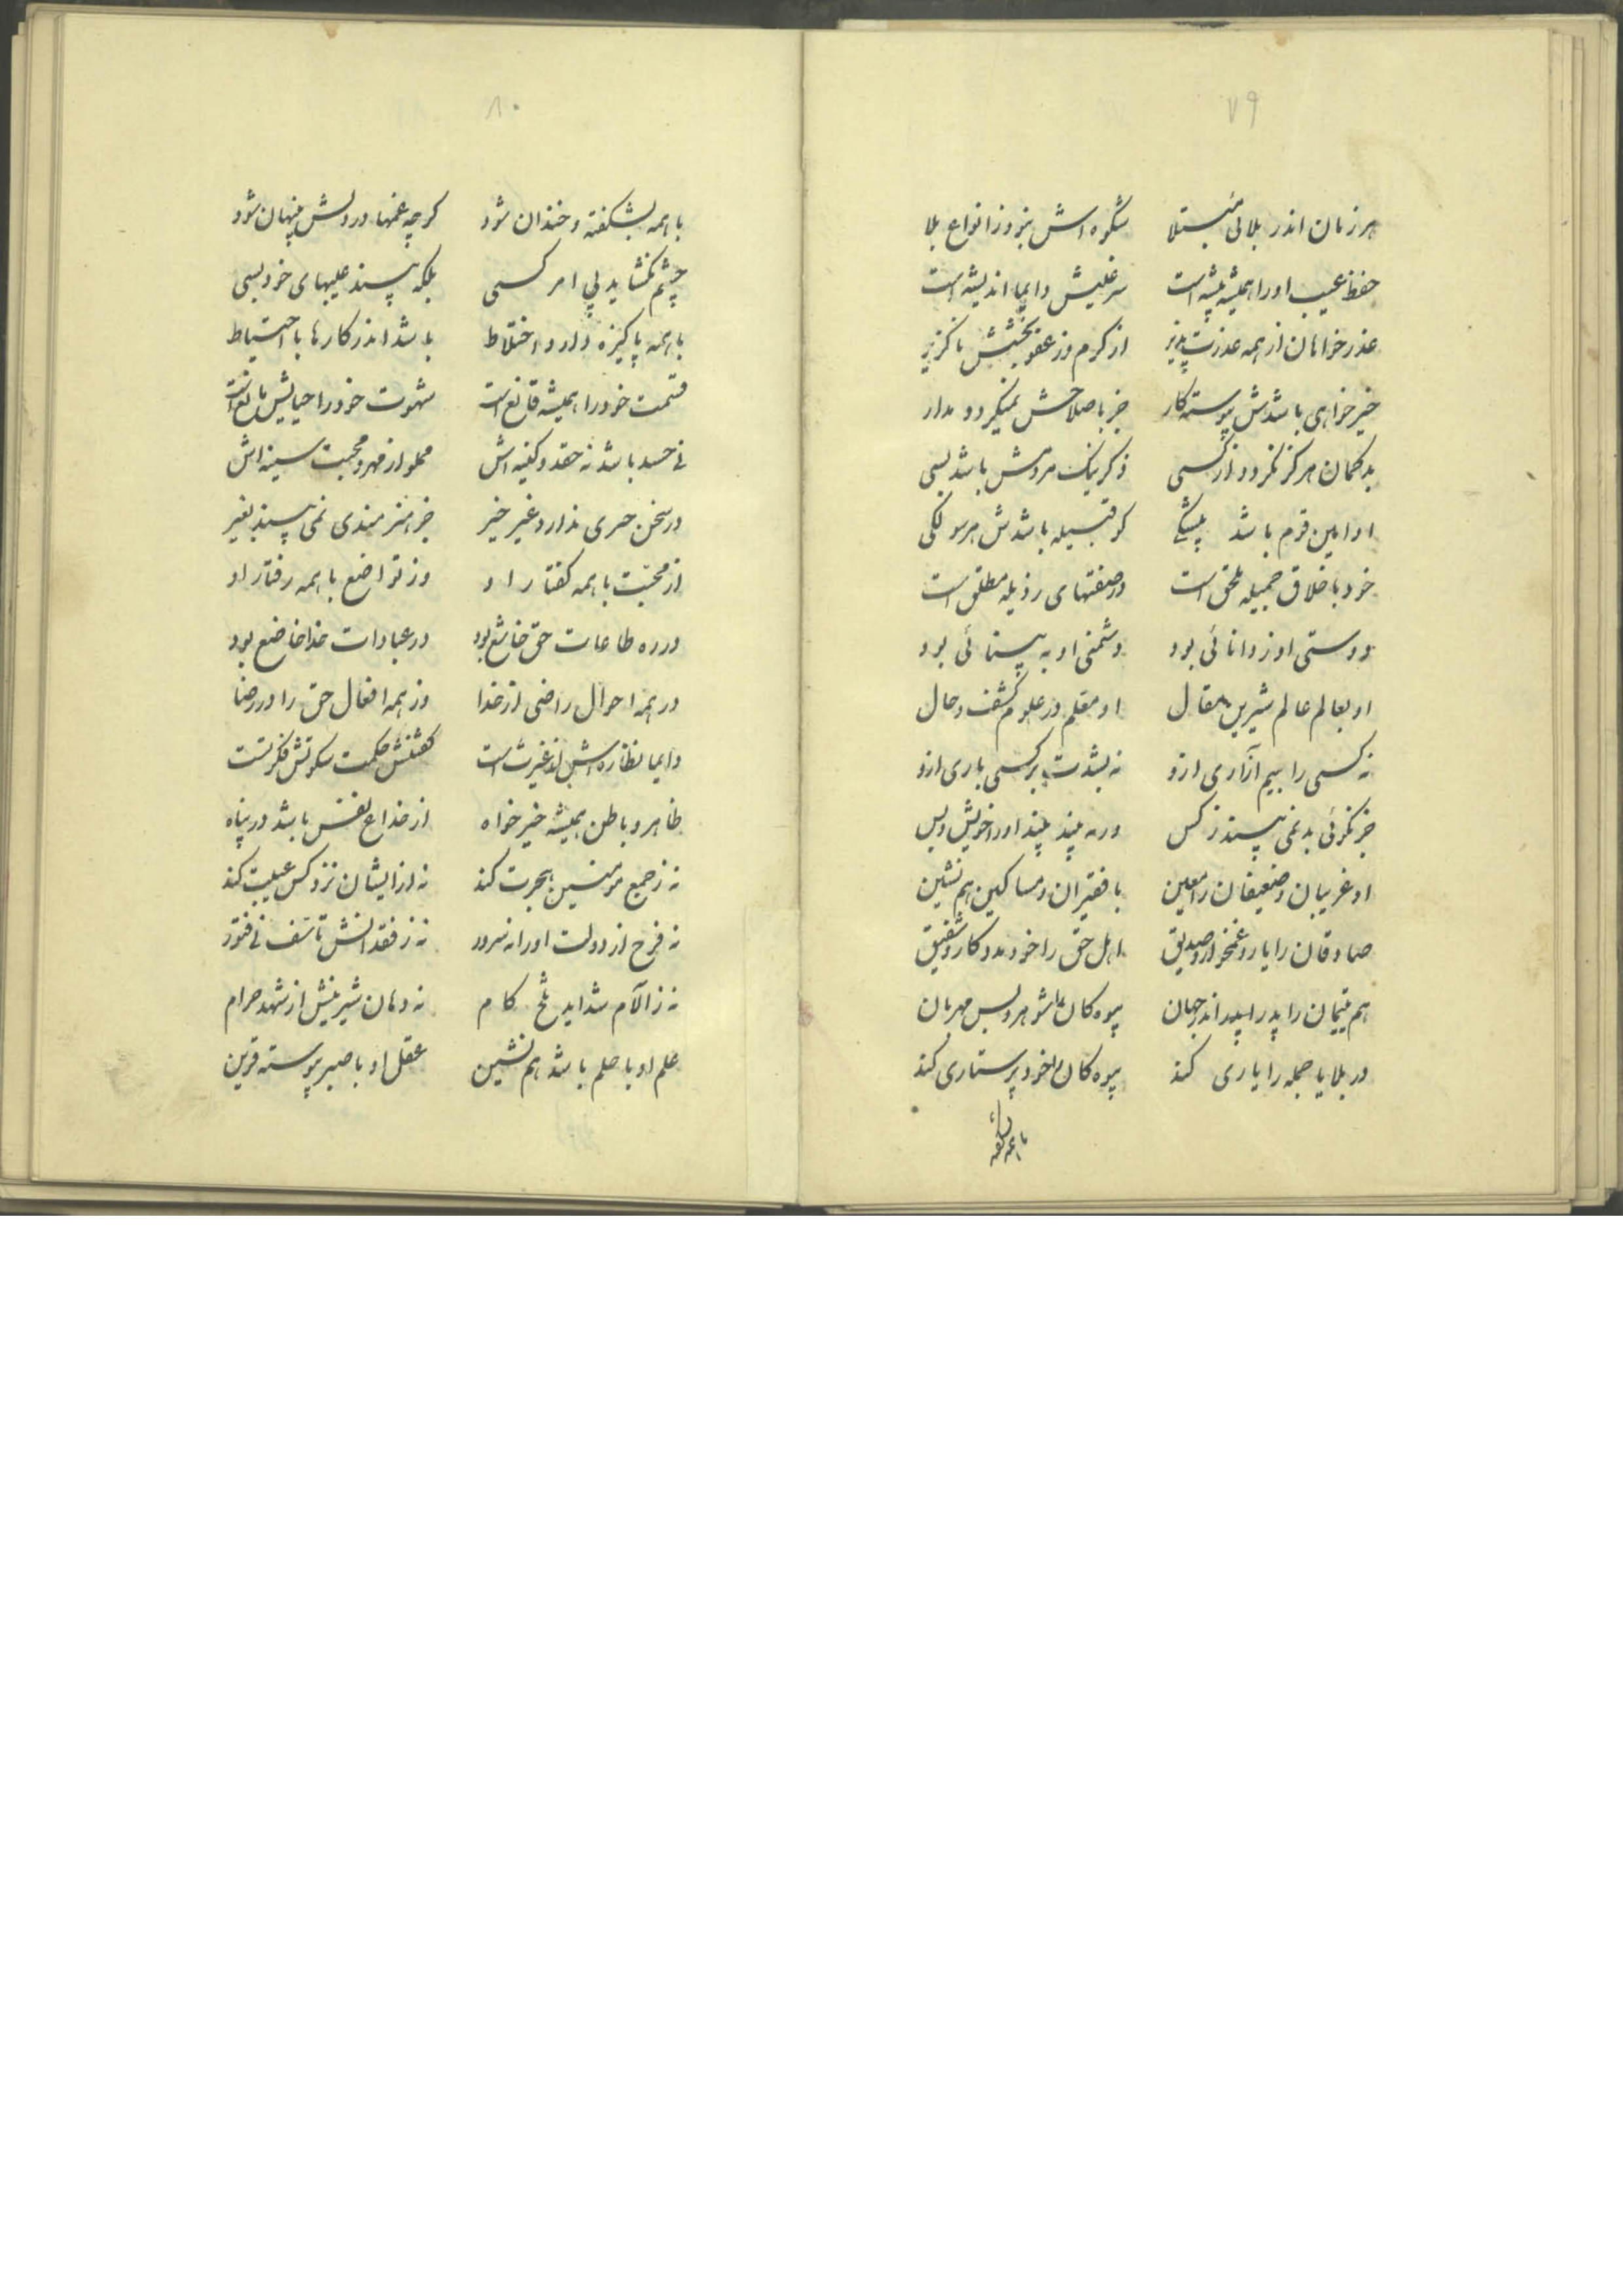 ۷۹
هر زمان اندر بلائی مبتلا شکوه اش نبود ز انواع بلا
حفظ غیب او را همیشه پیشه است دایما اندیشه است
عذر خواهان از همه عذرت پذیر از کرم وز عفو بخشش ناگزیر
خیر خواهی باشدش پیوسته کار جز باصلاحش نمیگردد مدار
بد کمان هرکز نکردد از کسی ذکر نیک مردمش باشد بسی
او امین قوم باشد بیشکی کو قبیله باشدش هر سو لکی
خود باخلاق جمیله ملحق است وز صفتهای رذیله مطلق است
دوستی او ز دانائی بود دشمنی او به بینائی بود
او بعالم عالم شیرین مقال او معلم در علوم کشف و حال
نه کسی را بیم آزاری ازو نه بشدت بر کسی باری ازو
جز نکوئی بد نمی بیند ز کس ور بد بیند او را خویش و بس
او غریبان و ضعیفان را معین با فقیران و مساکین هم نشین
صادقان را یار و غمخوار و صدیق اهل حق را خود مددکار و شفیق
هم یتیمان را پدر اندر جهان بیوه کان را شوهر و بس مهربان
در بلایا جمله را یاری کند بیوه کان را خود پرستاری کند
با همه بشکفته
۸۰
با همه بشکفته و خندان شود کرچه غمها در دلش پنهان شود
چشم نکشاید پی امر کسی بلکه بیند عیبهای خود بسی
با همه پاکیزه دارد اختلاط باشد اندر کارها با احتیاط
قسمت خود را همیشه قانع است شهوت خود را حیایش مانع است
نی حسد باشد نه حقد و کینه اش مملو از مهر و محبت سینه اش
در سخن حرفی ندارد غیر خیر جز هنرمندی نمی بیند بغیر
از محبت با همه کفتار او وز تواضع با همه رفتار او
در ره طاعات حق خاشع بود در عبادات خدا خاضع بود
در همه احوال راضی از خدا وز همه افعال حق را در رضا
دایما نظاره اش از عبرت است کفتنش حکمت سکوتش فکرتست
ظاهر و باطن همیشه خیر خواه از خداع نفس باشد در پناه
نه ز جمیع مومنین هجرت کند نه از ایشان نزد کس غیبت کند
نه فرح از دولت او را نه سرور نه ز فقدانش تاسف نی فتور
نه ز آلام شداید تلخ کام نه دهان شیرینش از شهد حرام
علم او با حلم باشد هم نشین عقل او با صبر پیوسته قرین